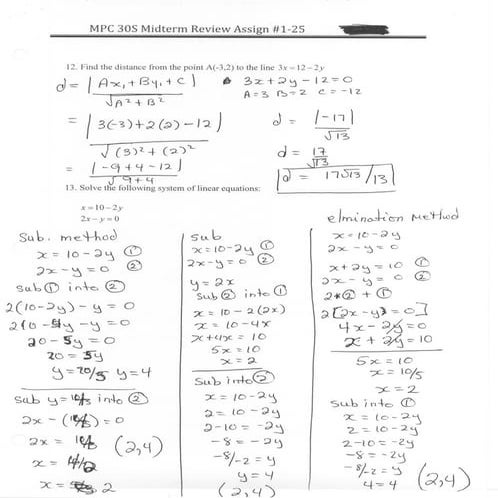 MPC 30S Midterm Review Assign #1-25
12. Find the distance from the point A(-3,2) to the line 3x = 12 – 2y
d = |Ax₁ + By₁ + C| / √A² + B²
3x + 2y - 12 = 0
A = 3 B = 2 C = -12
= |3(-3) + 2(2) - 12| / √(3)² + (2)²
= |-9 + 4 - 12| / √9 + 4
d = |-17| / √13
d = 17 / √13
d = 17√13 / 13
13. Solve the following system of linear equations:
x = 10 – 2y
2x – y = 0
Sub. method
x = 10 - 2y ①
2x - y = 0 ②
sub ① into ②
2(10 - 2y) - y = 0
20 - 4y - y = 0
20 - 5y = 0
20 = 5y
y = 20/5 y = 4
sub y = into ②
2x - ( ) = 0
2x =
x =
x = 2
(2,4)
sub
x = 10 - 2y ①
2x - y = 0 ②
y = 2x
Sub ② into ①
x = 10 - 2(2x)
x = 10 - 4x
x + 4x = 10
5x = 10
x = 2
Sub into ②
x = 10 - 2y
2 = 10 - 2y
2 - 10 = -2y
-8 = -2y
-8/-2 = y
y = 4
(2,4)
elmination Method
x = 10 - 2y
2x - y = 0
x + 2y = 10 ①
2x - y = 0 ②
2*② + ①
2[2x - y = 0]
4x - 2y = 0
x + 2y = 10
5x = 10
x = 10/5
x = 2
sub into ①
x = 10 - 2y
2 = 10 - 2y
2 - 10 = -2y
-8 = -2y
-8/-2 = y
4 = y
(2,4)